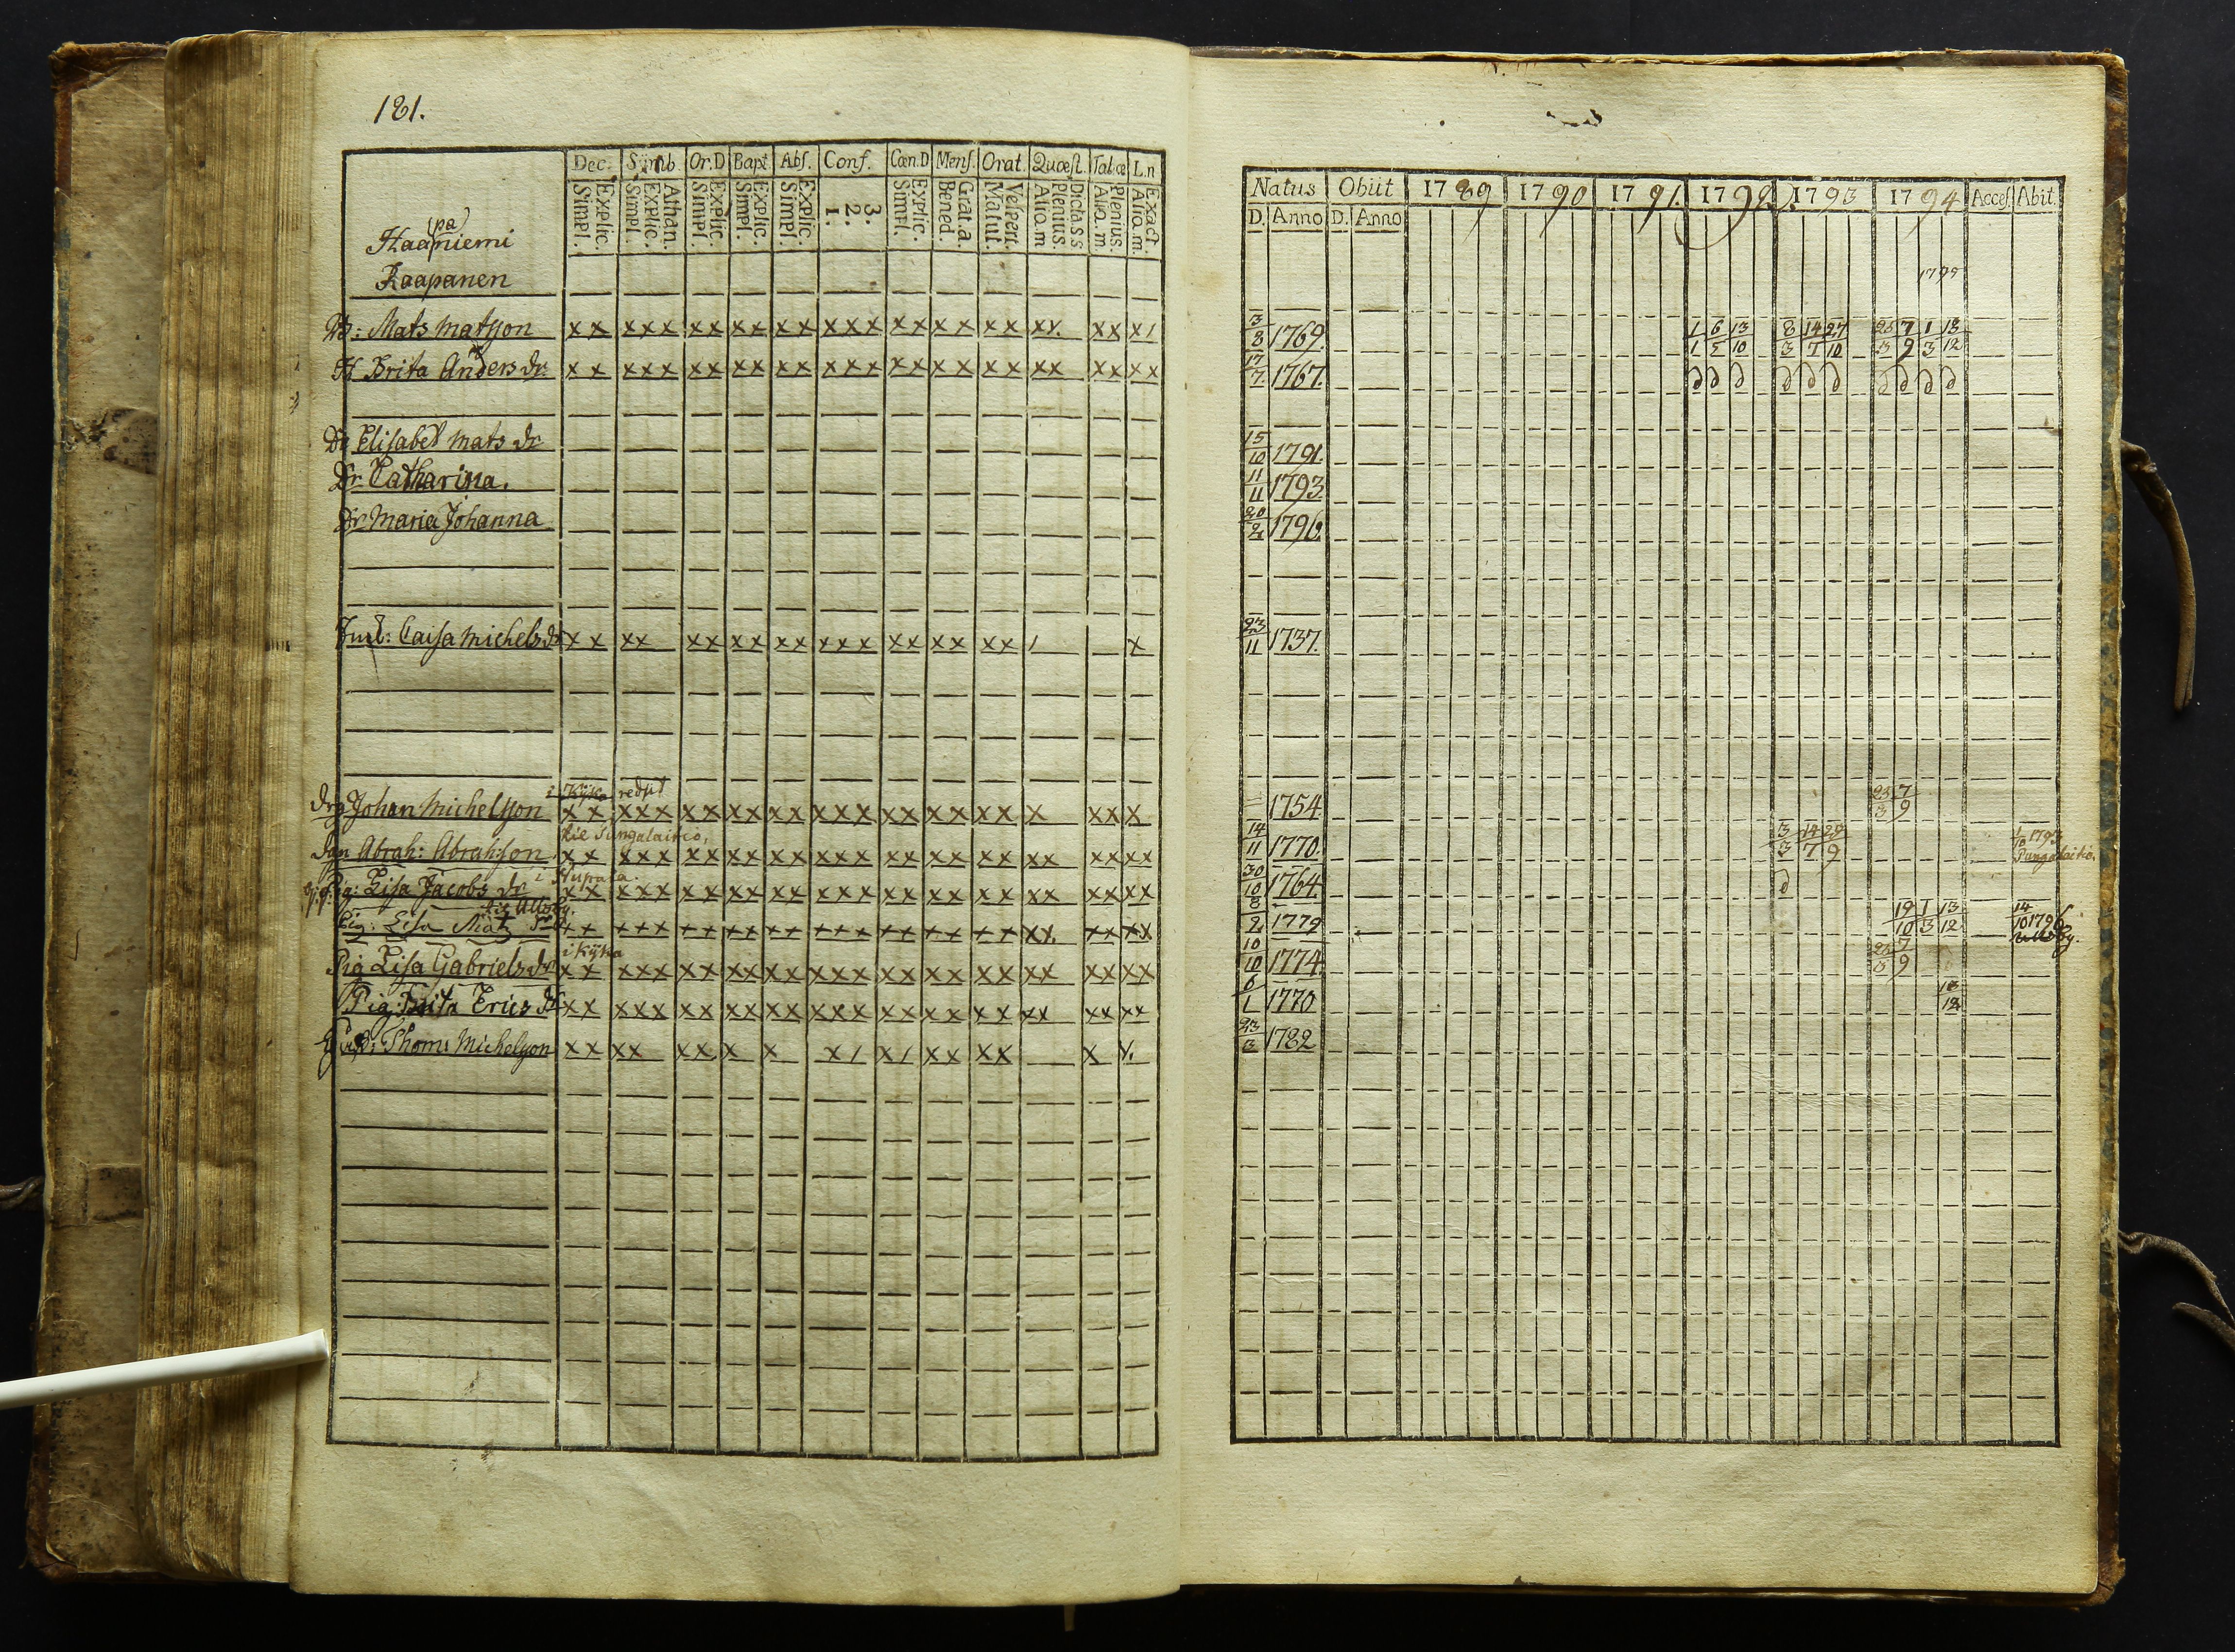 181.
Dec. Sÿmb. Or.D Bapt Abſ. Conf. Cœn.D Menſ. Orat. Quœſt. Tabœ L.n
Explic. Simpl. Athan. Explic. Simpl. Explic. Simpl. Explic. Simpl. Explic. Simpl. 3. 2. 1. Explic. Simpl. Grat.a. Bened. Veſpert. Matut. Dicta s s Plenius. Aliq.m Plenius. Aliq.m. Exact Aliq.m.
(pa)
Haaniemi
Kaapanen
Mats Matsson x x x x x x x x x x x x x x x x x x x x x x x x x
H Brita Anders dr. x x x x x x x x x x x x x x x x x x x x x x x x x x
Dr Elisabet Mats dr
Dr. Catharina.
Dr Maria Johanna
Caisa Michels dr x x x x x x x x x x x x x x x x x x x x x
i Kÿka redut
drg Johan Michelsson x x x x x x x x x x x x x x x x x x x x x x x x x
til Pungalaitio,
Abrah: Abrahsson x x x x x x x x x x x x x x x x x x x x x x x x x x
i Stupala.
Pig: Lisa Jacobs dr x x x x x x x x x x x x x x x x x x x x x x x x x x
Pig: Lisa Mats x x x x x x x x x x x x x x x x x x x x x x x x x x
i Kÿka
Pig Lisa Gabriels dr x x x x x x x x x x x x x x x x x x x x x x x x x x
Pig. Brita Erics dr x x x x x x x x x x x x x x x x x x x x x x x x x x
Thom: Michelsson x x x x x x x x x x x x x x x x x
Natus Obiit 1789 1790 1791. 1792. 1793 1794 Acceſ. Abit.
D. Anno D. Anno
1795
3/8 1769. 1/1 6/5 13/10 8/3 14/7 27/10 7/9 1/3 13/12
17/7. 1767.
15/10 1791.
11/11 1793.
20/2 1796.
23/11 1737.
1754. 23/3 7/9
14/11 1770. 3/3 14/7 29/9 1/10 1793 Pungalaitio.
30/10 1764.
8/2 1779 19/10 1/3 13/12 14/10 1796
10/10 1774. 23/3 7/9
6/1 1770 13/12
23/3 1782